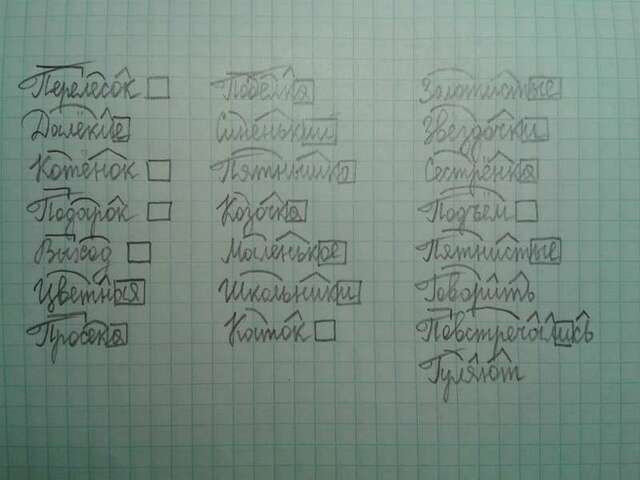 Перелесок
Далекие
Котёнок
Подарок
Выход
Цветная
Просека
Побелка
Синенький
Пятнышко
Козочка
Маленькое
Школьники
Каток
Золотистые
Звездочки
Сестрёнка
Подъём
Пятнистые
Говорить
Повстречались
Гуляют